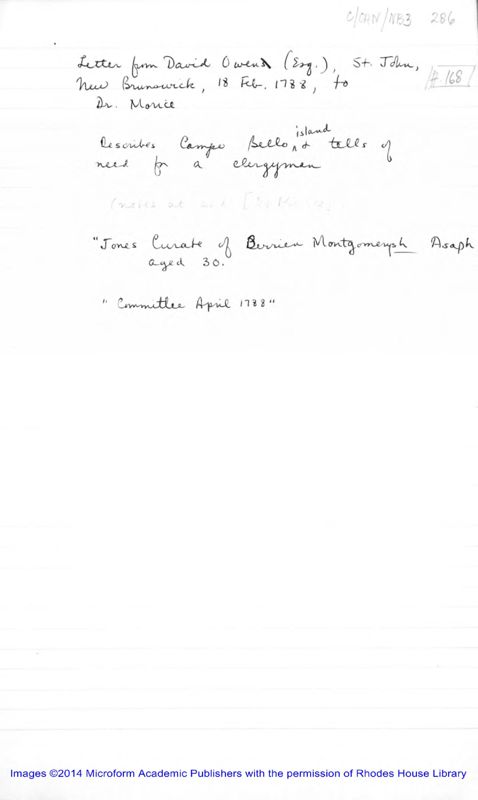 C/CAN/NB3 286
Letter from David Owen (Esq.), St. John, # 168
New Brunswick, 18 Feb. 1788, to
Dr. Morice
Describes Campo Bello island & tells of
need for a clergyman
(notes at end
"Jones Curate of Berrien Montgomerysh Asaph
aged 30.
"Committee April 1788"
Images ©2014 Microform Academic Publishers with the permission of Rhodes House Library